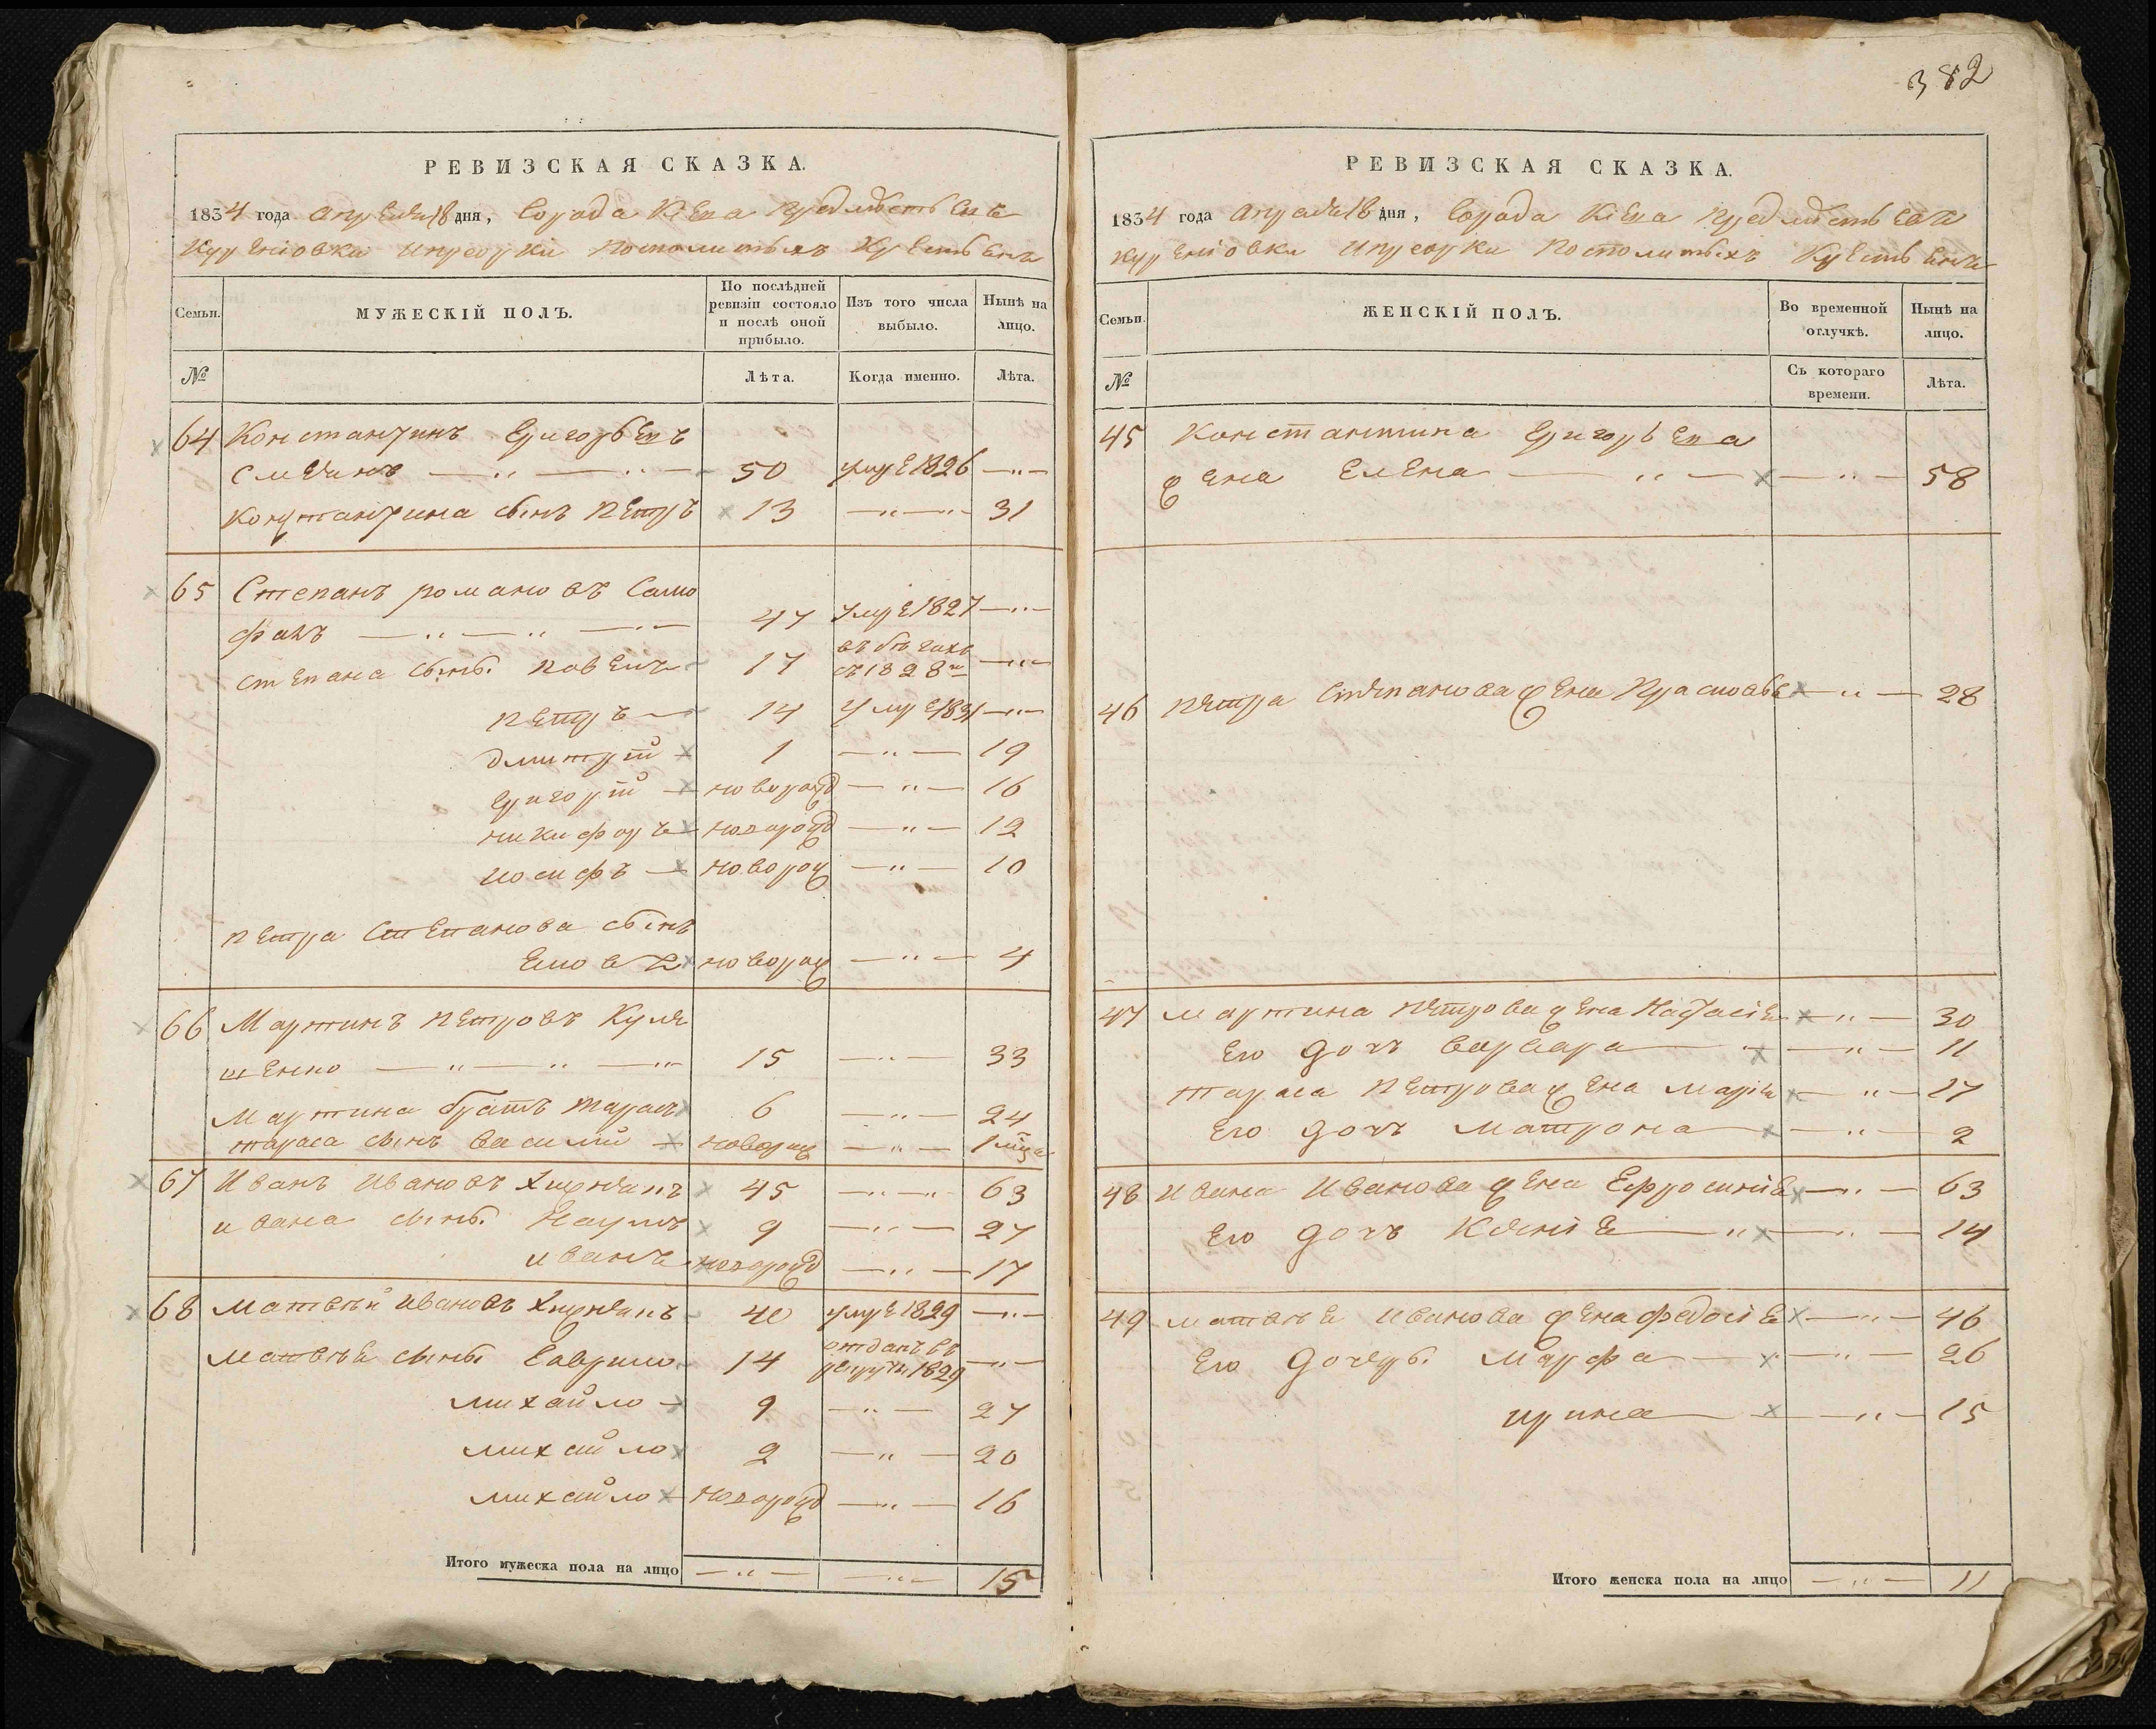 382
РЕВИЗСКАЯ СКАЗКА.
1834 года апреля 18 дня, города Кіева предмѣстьевъ
Куреніовки и Преорки посполитыхъ крестьянъ
Семьи. МУЖЕСКІЙ ПОЛЪ. По послѣдней ревизіи состояло и послѣ оной прибыло. Изъ того числа выбыло. Нынѣ на лицо.
№ Лѣта. Когда именно. Лѣта.
64 Константинъ Григорьевъ
50 умре 1826 —"—
Константина сынъ Петръ 13 —"— 31
65 Степанъ Романовъ Само
фалъ —"—"— 47 умре 1827 —"—
Степана сыны. Павелъ 17 въ бѣгахъ съ 1828го —"—
Петръ 14 умре 1831 —"—
Дмитрій 1 —"— 19
Григорій новорожд —"— 16
Никифоръ новорожд —"— 12
Иосифъ новорож —"— 10
Петра Степанова сынъ
новорож —"— 4
66 Мартинъ Петровъ Куля
шенко —"—"— 15 —"— 33
Мартина братъ Тарасъ 6 —"— 24
Тараса сынъ Василій новорож —"— 1 мѣся
67 Иванъ Ивановъ 45 —"— 63
Ивана сыны. Наумъ 9 —"— 27
Иванъ новорожд —"— 17
68 Матвѣй Ивановъ 40 умре 1829 —"—
Матвѣя сыны Гаврило 14 отданъ въ рекруты 1829 —"—
Михайло 9 —"— 27
Михайло 2 —"— 20
Михайло новорожд —"— 16
Итого мужеска пола на лицо —"— —"— 15
РЕВИЗСКАЯ СКАЗКА.
1834 года апреля 18 дня, города Кіева предмѣстьевъ
Куреніовки и Преорки посполитыхъ крестьянъ
Семьи. ЖЕНСКІЙ ПОЛЪ. Во временной отлучкѣ. Нынѣ на лицо.
№ Съ котораго времени. Лѣта.
45 Константина Григорьева
жена Елена —"— —"— 58
46 Петра Степанова жена —"— 28
47 Мартина Петрова жена Настасія —"— 30
Его дочь Варвара —"— 11
Тараса Петрова жена Марія —"— 27
Его дочь Матрона —"— 2
48 Ивана Иванова жена Ефросинія —"— 63
Его дочь Ксенія —"— 14
49 Матвѣя Иванова жена Федосія —"— 46
Его дочеры. Марфа —"— 26
Ирина —"— 15
Итого женска пола на лицо —"— 11